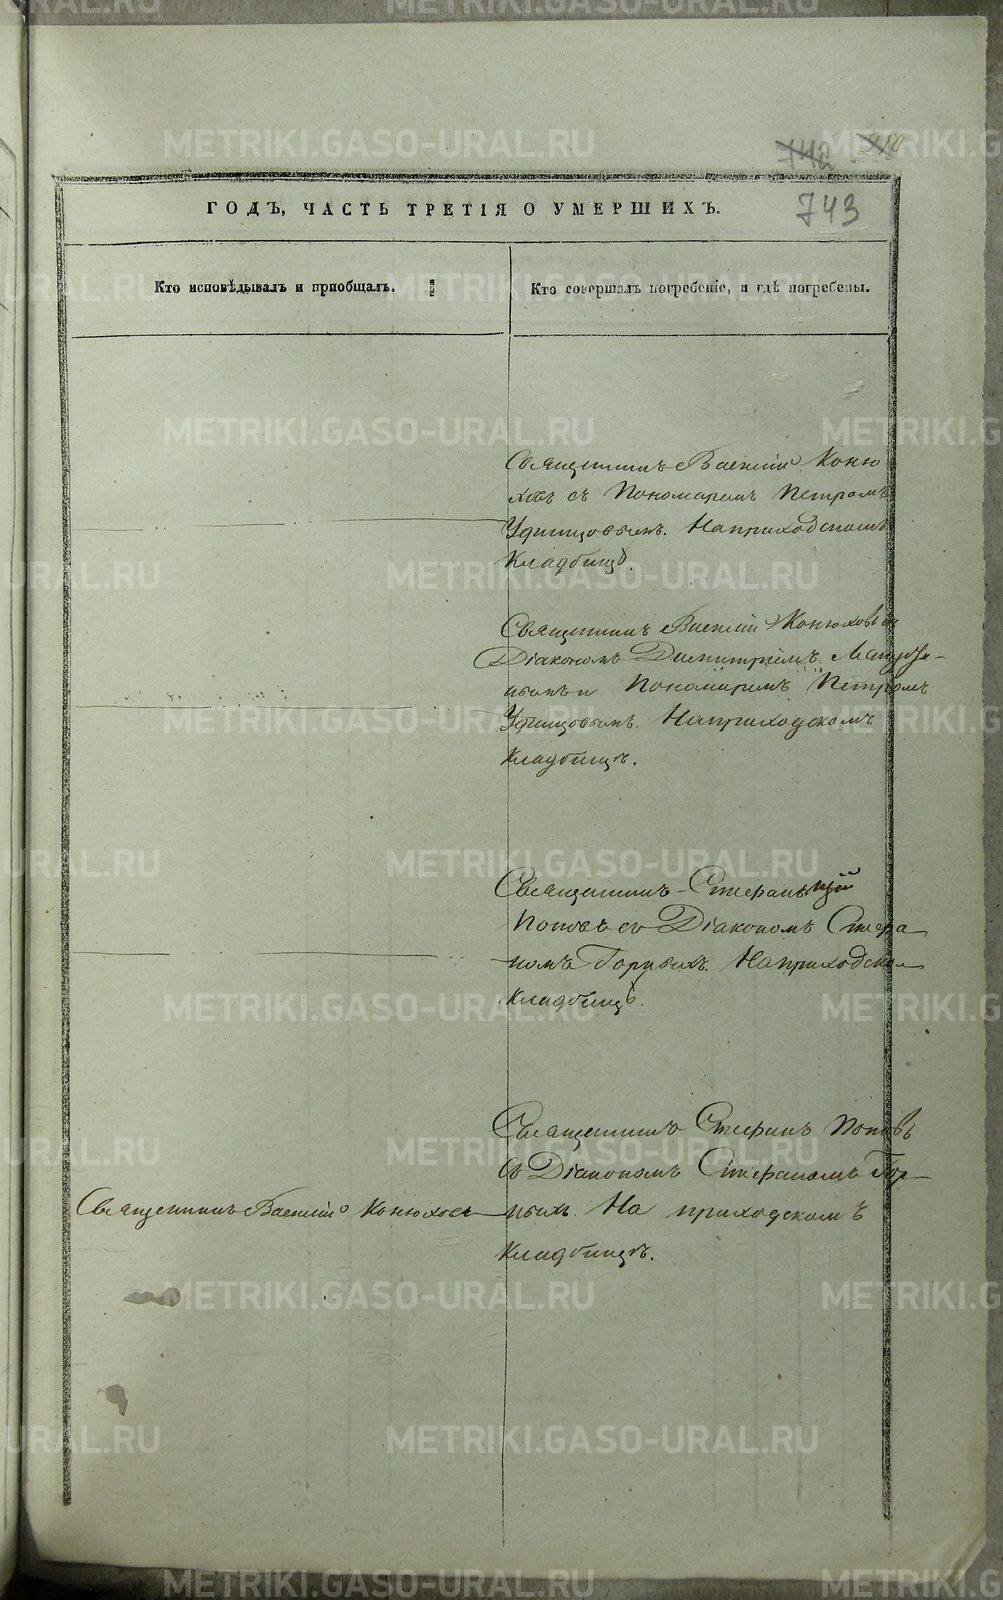 METRIKI.GASO-URAL.RU
742 210
743
ГОДЪ, ЧАСТЬ ТРЕТІЯ О УМЕРШИХЪ.
Кто исповѣдывалъ и пріобщалъ.
Кто совершалъ погребеніе, и гдѣ погребены.
Священникъ Василій Коню
ховъ съ Пономаремъ Петромъ
Уфинцовымъ. На приходскомъ
Кладбищѣ.
Священникъ Василій Конюховъ съ
Діакономъ Димитріемъ
и Пономаремъ Петромъ
Уфинцовымъ. На приходскомъ
Кладбищѣ.
Священникъ Стефанъ
Поповъ съ Діакономъ Стефа
номъ Горныхъ. На приходском
Кладбищѣ.
Священникъ Стефанъ Поповъ
съ Діакономъ Стефаномъ Гор
ныхъ. На приходскомъ
Кладбищѣ.
Священникъ Василій Конюховъ